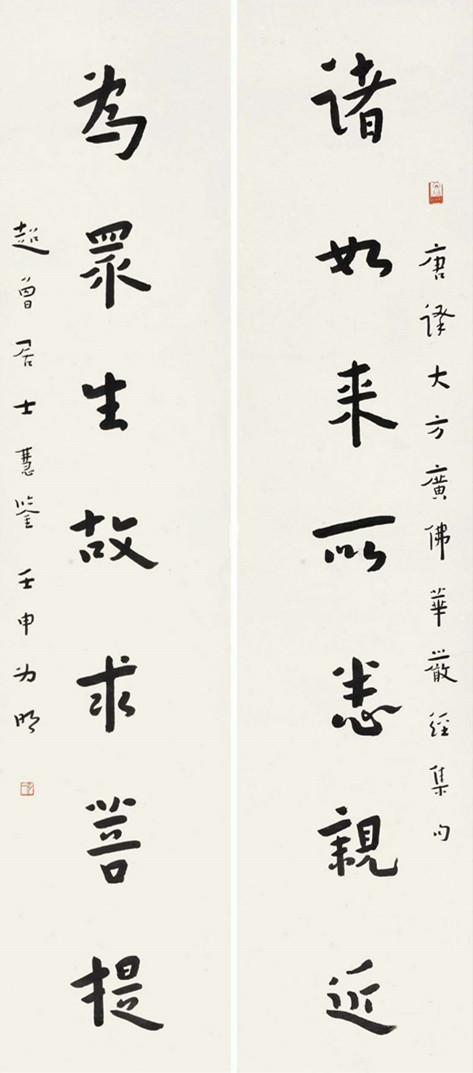 唐譯大方廣佛華嚴經集句
諸如来所悉親近
為眾生故求菩提
超曾居士慧鑒壬申为明